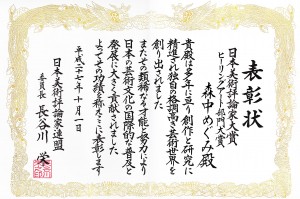 表彰状
日本美術評論家大賞
ヒーリングアート部門大賞
森中めぐみ殿
貴殿は多年に亘り創作と研究に
精進され独自の格調高き芸術世界を
創り出されました
またその類稀なる才能と努力により
日本の芸術文化の国際的な普及と
発展に大きく貢献されました
よってその功績を称えここに表彰します
平成二十七年十月一日
日本美術評論家連盟
委員長 長谷川 栄